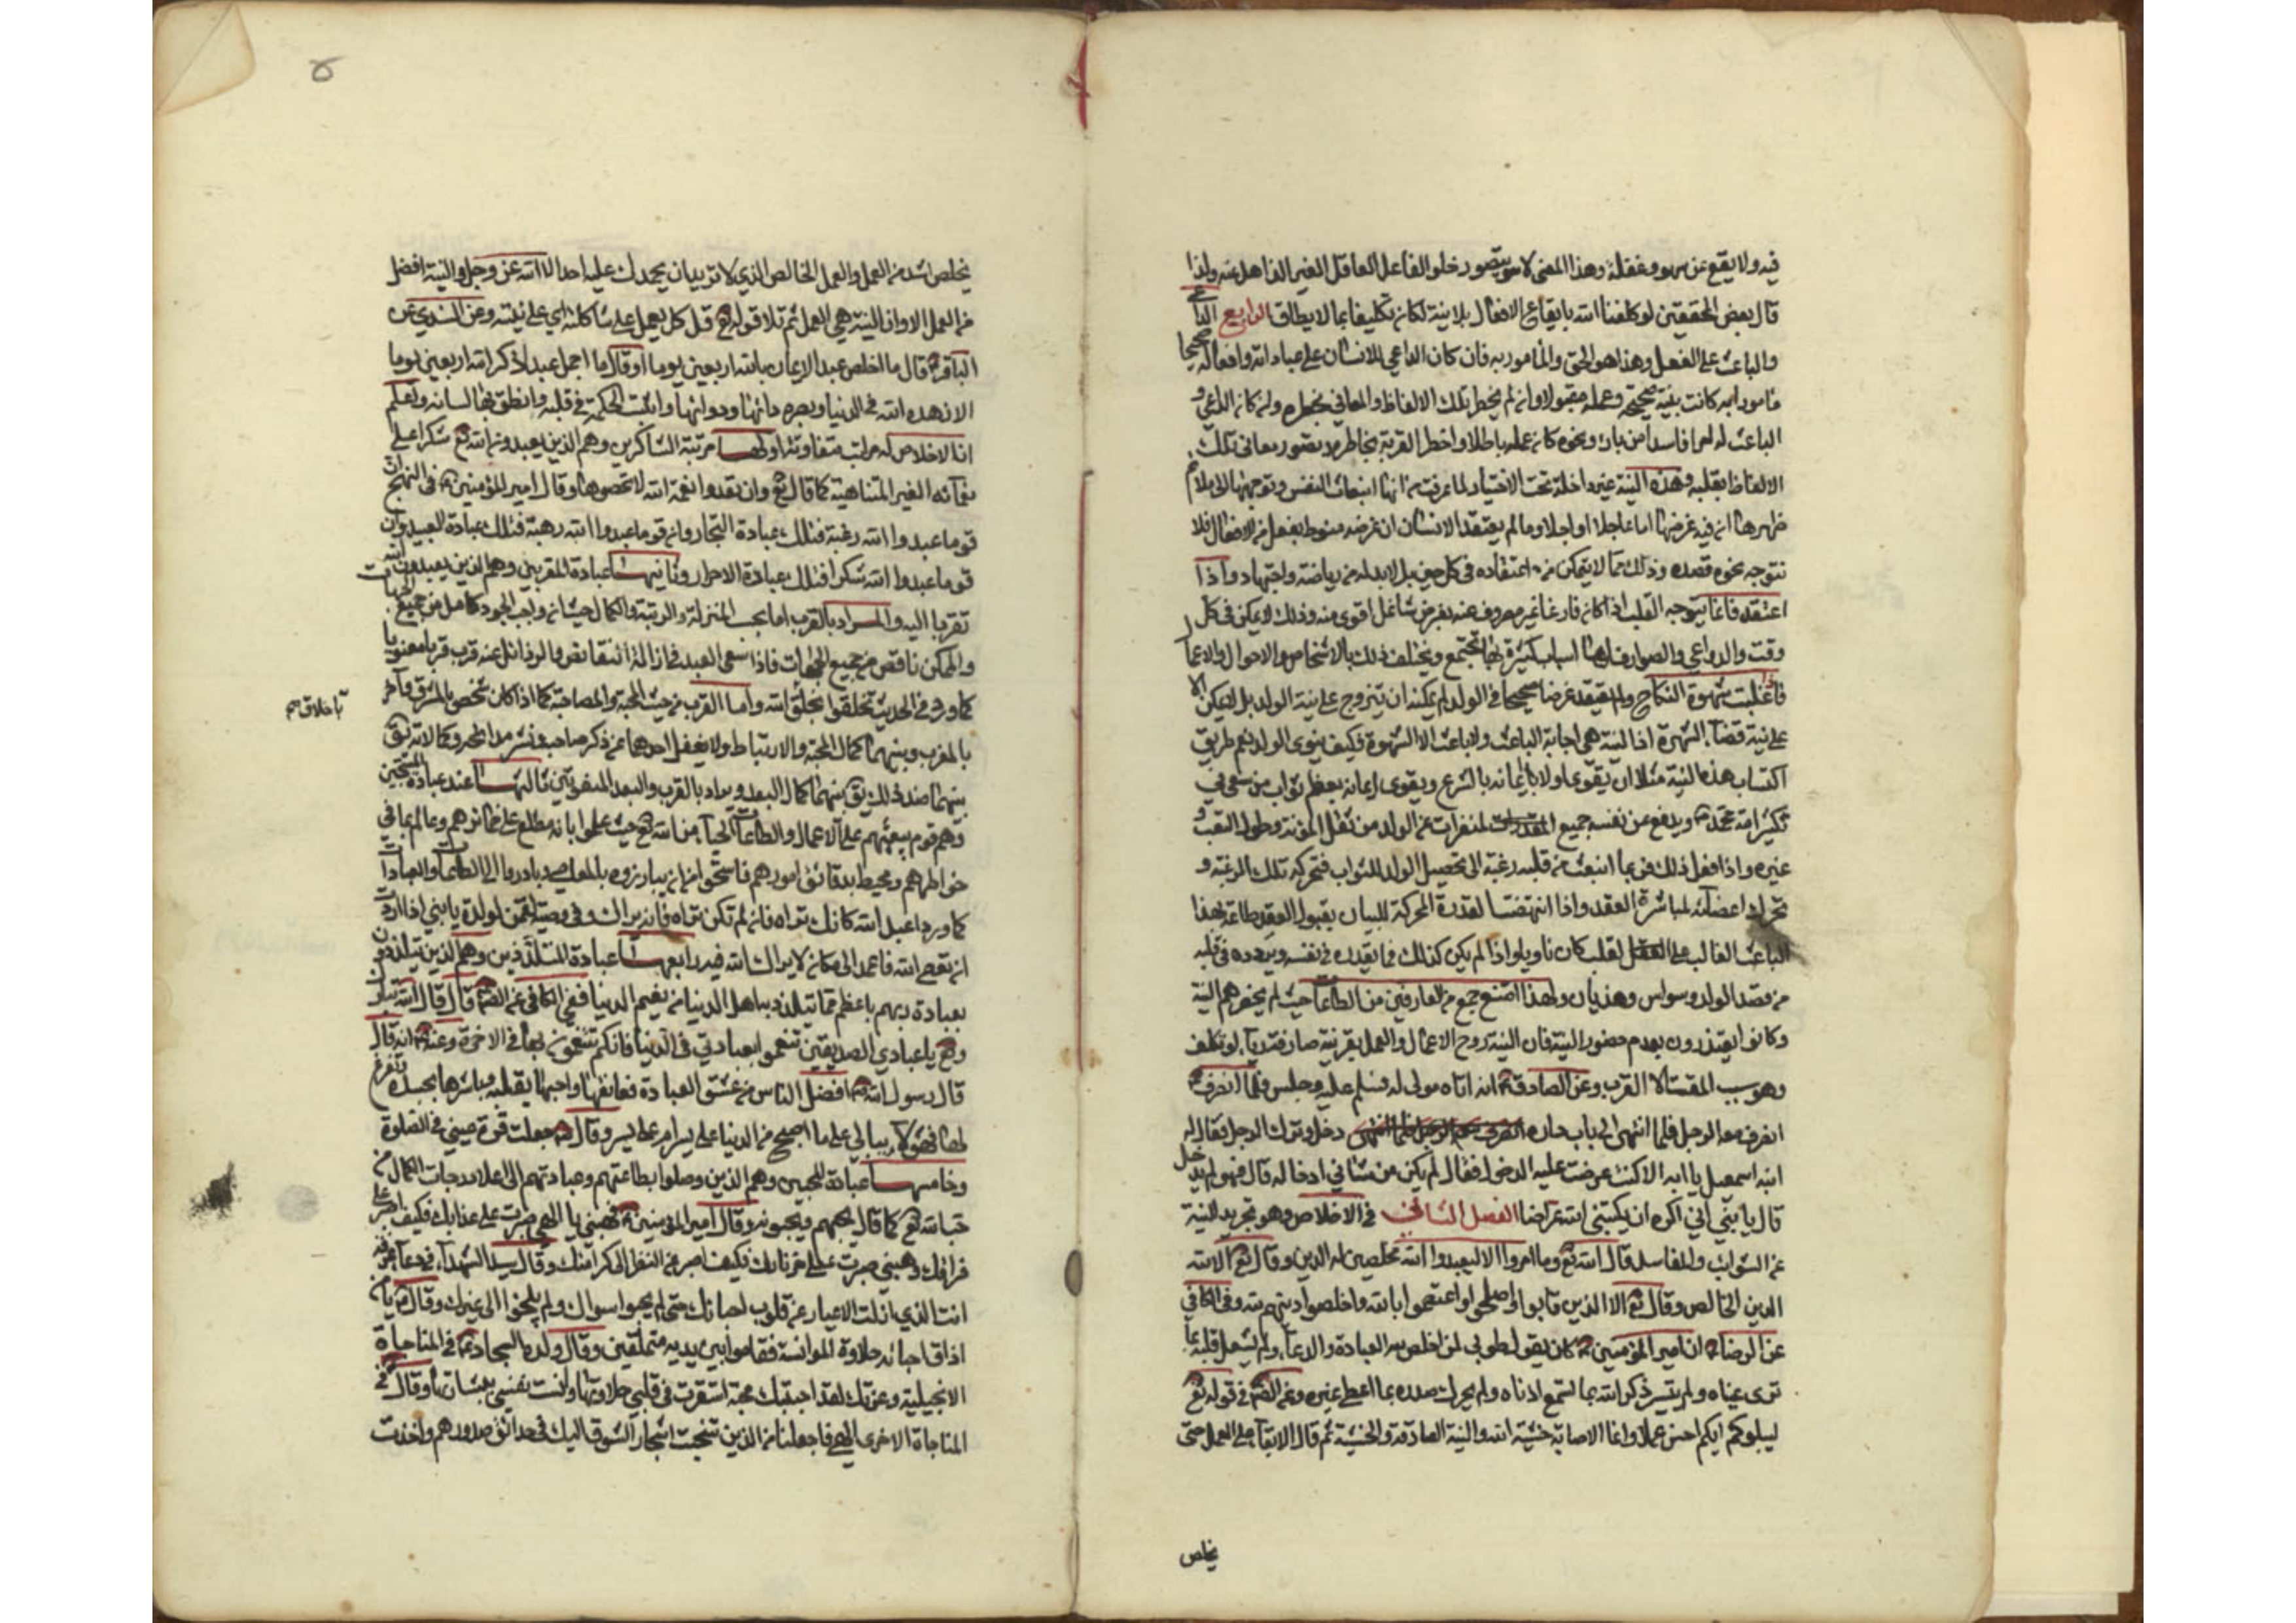 فيه ولا يقع عن سهو وغفلة وهذا المعنى لا يتصور خلو الفاعل العاقل الغير الذاهل عنه ولذا
قال بعض المحققين لو كلفنا الله بايقاع الافعال بلا نية لكان تكليفا بما لا يطاق الرابع الداعي
والباعث على الفعل وهذا هو الحق والمامور به فان كان الداعي للانسان على عبادته وافعاله صحيحا
مامورا به كانت نيته صحيحة وعمله مقبولا وان لم يخطر تلك الالفاظ والمعاني بخاطره وان كان الداعي و
الباعث له امرا فاسدا من رياء ونحوه كان عمله باطلا واخطر القربة بخاطره وتصور معاني تلك
الالفاظ بقلبه وهذه النية غير داخلة تحت الاختيار لما عرفت من انها انبعاث النفس وتوجهها الى ما
ظهر لها ان فيه غرضها اما عاجلا او اجلا وما لم يعتقد الانسان ان غرضه منوط بفعل من الافعال فلا
يتوجه نحوه قصده وذلك مما لا يتمكن من اعتقاده في كل حين بل لابد له من رياضة واجتهاد واذا
اعتقد فانما يتوجه القلب اذا كان فارغا غير مصروف عنه بغرض شاغل اقوى منه وذلك لا يمكن في كل
وقت والدواعي والصوارف لها اسباب كثيرة بها تجتمع ويختلف ذلك بالاشخاص والاحوال والاعمال
فاذا غلبت شهوة النكاح ولم يعتقد غرضا صحيحا في الولد لم يمكنه ان يتزوج على نية الولد بل لا يمكن الا
على نية قضاء الشهوة اذ النية هي اجابة الباعث ولا باعث الا الشهوة فكيف ينوي الولد نعم طريق
اكتساب هذه النية مثلا ان يقوي اولا ايمانه بالشرع ويقوي ايمانه بعظم ثواب من سعى في
تكثير امة محمد ص ويدفع عن نفسه جميع المنفرات عن الولد من ثقل المؤنة وطول التعب و
غيره واذا فعل ذلك فربما انبعث من قلبه رغبة الى تحصيل الولد للثواب فتحركه تلك الرغبة و
تحرك اعضائه لمباشرة العقد واذا انتهضت القدرة المحركة للسان بقبول العقد طاعة لهذا
الباعث الغالب على القلب كان ناويا واذا لم يكن كذلك فما يقدره في نفسه ويردده في قلبه
من قصد الولد وسواس وهذيان ولهذا امتنع جمع من العارفين من الطاعات حيث لم يحضرهم النية
وكانوا يعتذرون بعدم حضور النية فان النية روح الاعمال والعمل بغير نية صادقة رياء لو تكلف
وهو سبب المقت لا القرب وعن الصادق ع انه اتاه مولى له فسلم عليه وجلس فلما انصرف ع
انصرف معه الرجل فلما انتهى الى باب داره دخل وترك الرجل فقال له
ابنه اسمعيل يا ابه الا كنت عرضت عليه الدخول فقال لم يكن من شاني ادخاله قال فهو لم يدخل
قال يا بني اني اكره ان يكتبني الله عراضا الفصل الثاني في الاخلاص وهو تجريد النية
عن الشوائب والمفاسد قال الله تع وما امروا الا ليعبدوا الله مخلصين له الدين وقال تع الا لله
الدين الخالص وقال تع الا الذين تابوا واصلحوا واعتصموا بالله واخلصوا دينهم لله وفي الكافي
عن الرضا ع ان امير المؤمنين ع كان يقول طوبى لمن اخلص لله العبادة والدعاء ولم يشغل قلبه بما
ترى عيناه ولم ينس ذكر الله بما تسمع اذناه ولم يحزن صدره بما اعطي غيره وعن الص ع في قوله تع
ليبلوكم ايكم احسن عملا وانما الاصابة خشية الله والنية الصادقة والخشية ثم قال الابقاء على العمل حتى
يخلص
يخلص اشد من العمل والعمل الخالص الذي لا تريد ان يحمدك عليه احد الا الله عز وجل والنية افضل
من العمل الا وان النية هي العمل ثم تلا قوله تع قل كل يعمل على شاكلته اي على نيته وعن السندي عن
الباقر ع قال ما اخلص عبد الايمان بالله اربعين يوما او قال ما اجمل عبد ذكر الله اربعين يوما
الا زهده الله في الدنيا وبصره دائها ودوائها واثبت الحكمة في قلبه وانطق بها لسانه ولعلم
ان الاخلاص له مراتب متفاوتة اولها مرتبة الشاكرين وهم الذين يعبدون الله تع شكرا على
نعمائه الغير المتناهية كما قال تع وان تعدوا نعمة الله لا تحصوها وقال امير المؤمنين ع في النهج ان
قوما عبدوا الله رغبة فتلك عبادة التجار وان قوما عبدوا الله رهبة فتلك عبادة العبيد وان
قوما عبدوا الله شكرا فتلك عبادة الاحرار وثانيها عبادة المقربين وهم الذين يعبدون الله
تقربا اليه والمراد بالقرب اما بحسب المنزلة والرتبة والكمال حيث ان واجب الوجود كامل من جميع الجهات
والممكن ناقص من جميع الجهات فاذا سعى العبد في ازالة النقائص والرذائل عنه قرب قربا معنويا
كما ورد في الحديث تخلقوا بخلق الله واما القرب من حيث المحبة والمصاحبة كما اذا كان شخص بالمشرق وآخر
باخلاق صح
بالمغرب وبينهما كمال المحبة والارتباط ولا يغفل احدهما عن ذكر صاحبه ونشر مدائحه وكمالاته يق
بينهما ضد ذلك يق بينهما كمال البعد ويراد بالقرب والبعد المعنويين ثالثها عند عبادة المستحيين
وهم قوم يبعثهم على الاعمال والطاعات الحياء من الله تع حيث علموا بانه مطلع على ضمائرهم وعالم بما في
خواطرهم ومحيط بدقائق امورهم فاستحوا من ان يبارزوه بالمعاصي وبادروا الى الطاعات والعبادات
كما ورد اعبد الله كانك تراه فان لم تكن تراه فانه يراك وفي وصية لقمن لولده يا بني اذا اردت
ان تعصي الله فاعمد الى مكان لا يراك الله فيه رابعها عبادة المتلذذين وهم الذين يتلذذون
بعبادة ربهم باعظم مما يتلذذ به اهل الدنيا من نعيم الدنيا ففي الكافي عن الص ع قال قال الله تبارك
وتع يا عبادي الصديقين تنعموا بعبادتي في الدنيا فانكم تتنعمون بها في الاخرة وعنه ع انه قال
قال رسول الله ص افضل الناس من عشق العبادة فعانقها واحبها بقلبه وباشرها بجسده وتفرغ
لها فهو لا يبالي على ما اصبح من الدنيا على يسر ام على عسر وقال ص جعلت قرة عيني في الصلوة
وخامسها عبادة المحبين وهم الذين وصلوا بطاعتهم وعبادتهم الى اعلا درجات الكمال من
حب الله تع كما قال يحبهم ويحبونه وقال امير المؤمنين ع فهبني يا الهي صبرت على عذابك فكيف اصبر على
فراقك وهبني صبرت على حر نارك فكيف اصبر عن النظر الى كرامتك وقال سيد الشهداء في دعاء عرفه
انت الذي ازلت الاغيار عن قلوب احبائك حتى لم يحبوا سواك ولم يلجئوا الى غيرك وقال ع يا من
اذاق احبائه حلاوة الموانسة فقاموا بين يديه متملقين وقال ولده السجاد ع في المناجاة
الانجيلية وعزتك لقد احببتك محبة استقرت في قلبي حلاوتها وانست نفسي ببشارتها وقال ع في
المناجاة الاخرى الهي فاجعلنا من الذين توشحت اشجار الشوق اليك في حدائق صدورهم واخذت